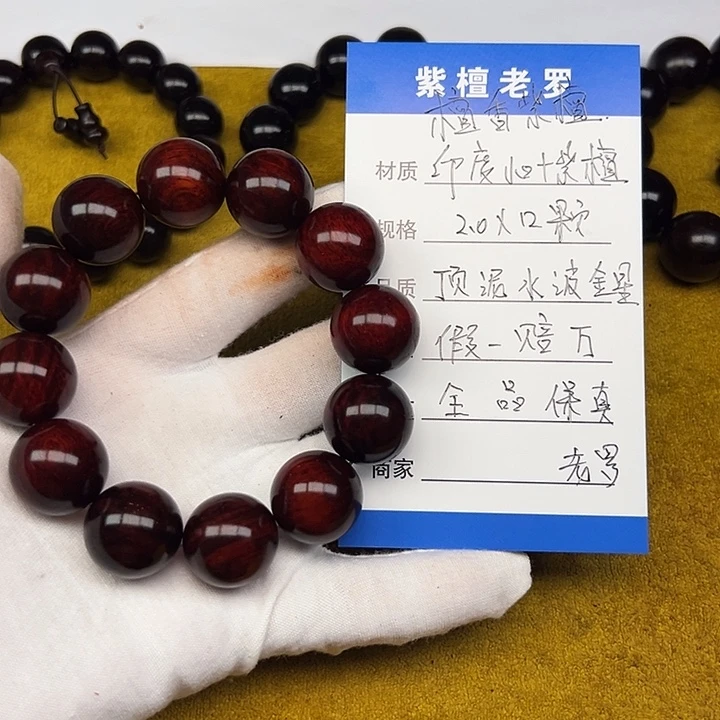 紫檀老罗
檀香紫檀
材质 印度小叶紫檀
规格 2.0X12颗
品质 顶泥水波金星
假一赔万
全品保真
商家 老罗